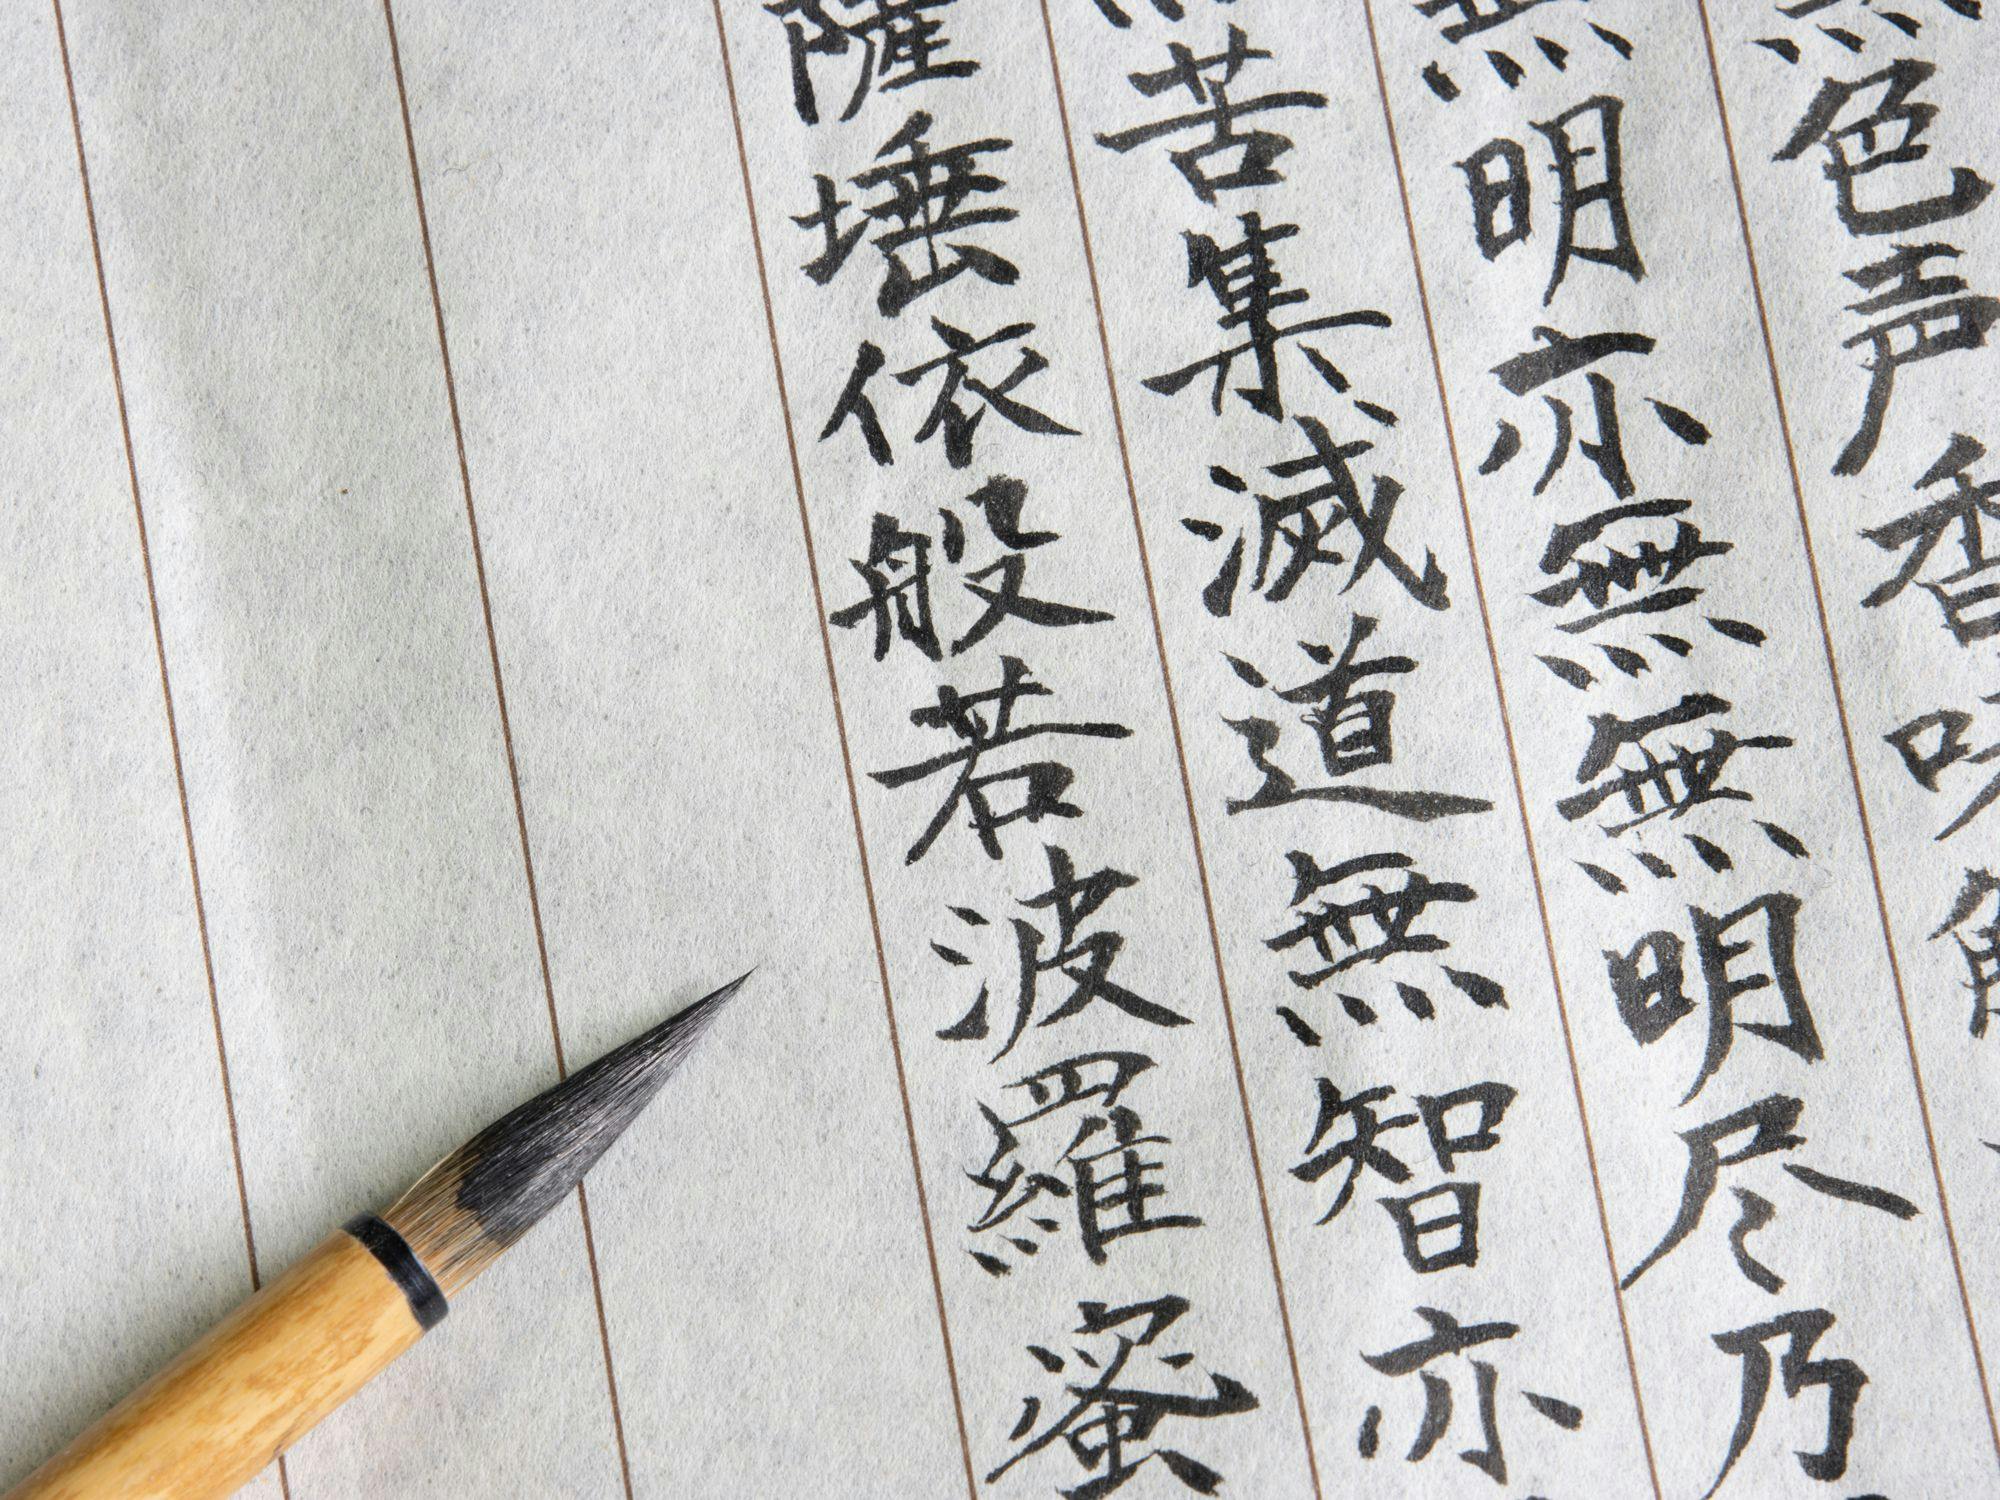 色声香味
明亦無無明尽乃
苦集滅道無智亦
薩埵依般若波羅蜜